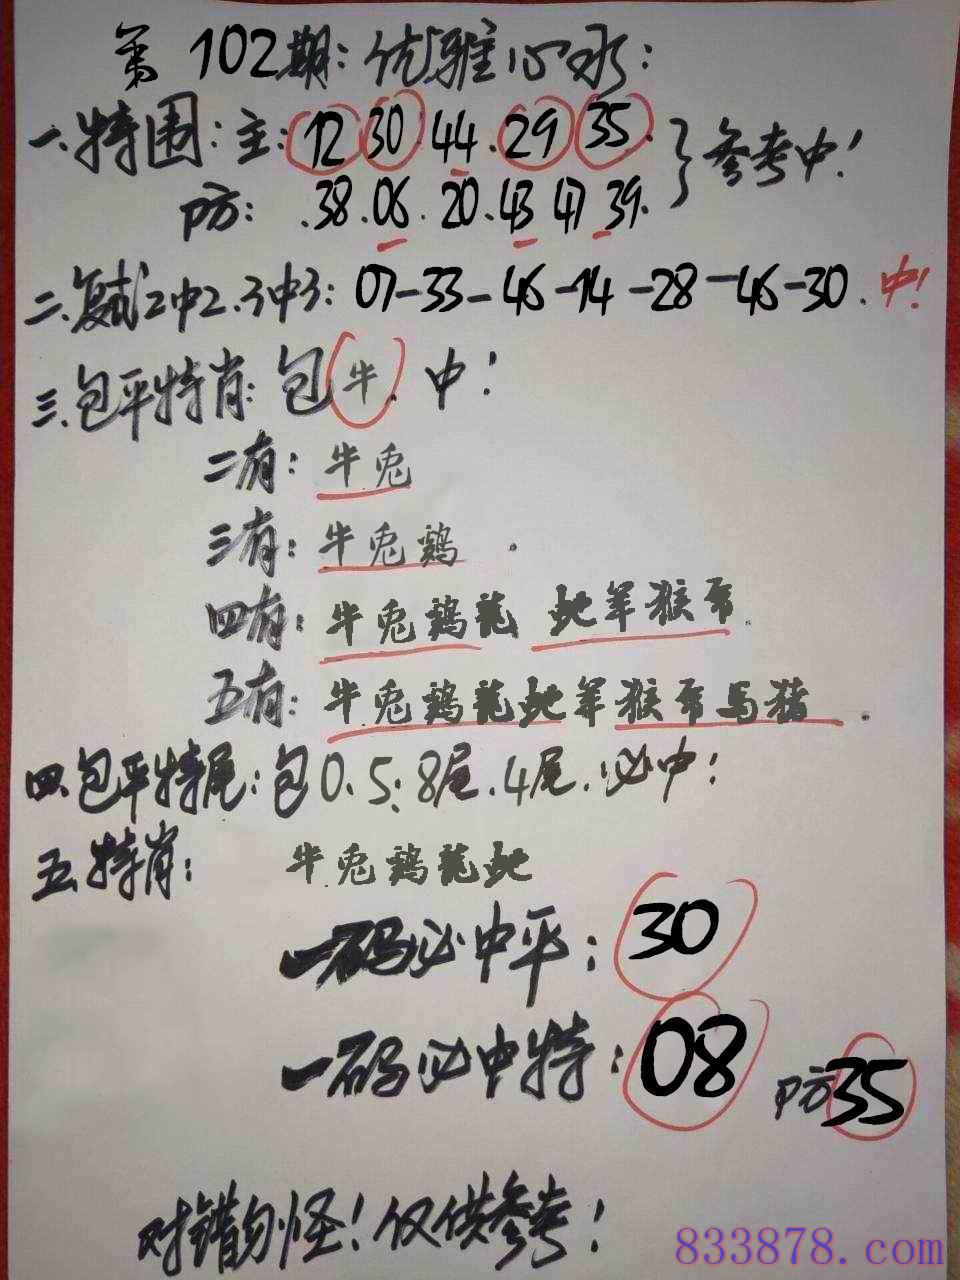 第102期:优雅心水:
一.特围:主:12 30.44.29 35.}参考中!
防: .38.06.20.43 47 39.
二.复式2中2.3中3:07-33-46-14-28-46-30.中!
三.包平特肖:包牛.中!
二有:牛兎
三有:牛兎鶏.
四有:牛兎鶏龍 蛇羊猴
五有:牛兎鶏龍蛇羊猴 馬猪.
四.包平特尾:包0.5:8尾.4尾.必中!
五特肖: 牛兎鶏龍蛇
一码必中平:30
一码必中特:08 防35
对错勿怪!仅供参考!
833878.com